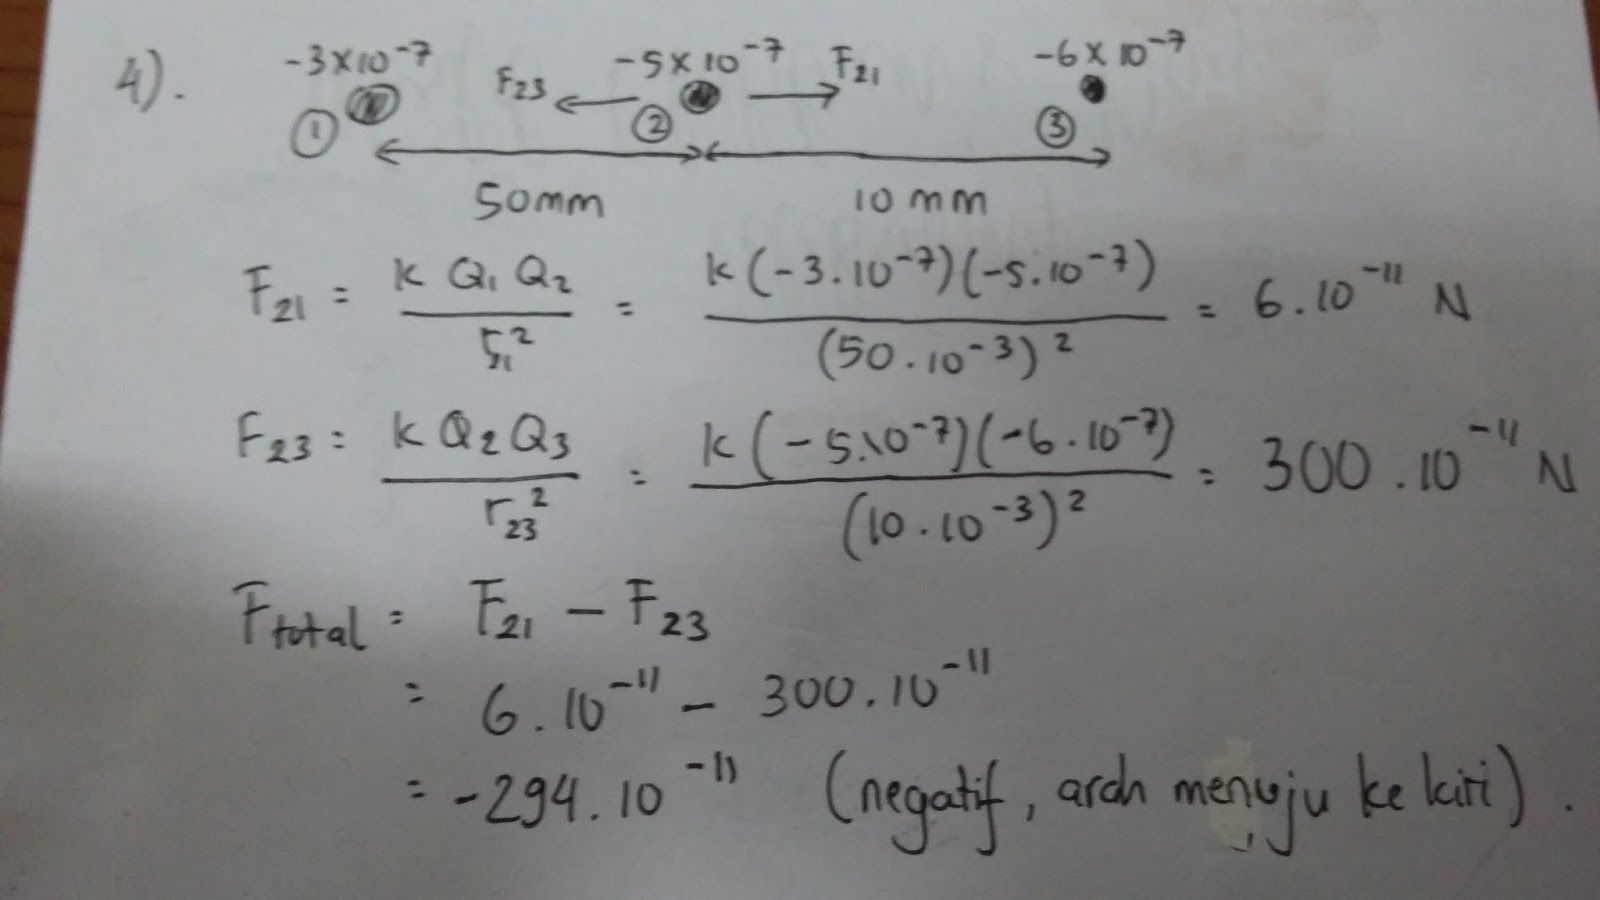 4). -3×10⁻⁷ F₂₃ -5×10⁻⁷ F₂₁ -6×10⁻⁷
① ② ③
50mm 10 mm
F₂₁ = k Q₁ Q₂ / r₂₁² = k(-3.10⁻⁷)(-5.10⁻⁷) / (50.10⁻³)² = 6.10⁻¹¹ N
F₂₃ = k Q₂ Q₃ / r₂₃² = k(-5.10⁻⁷)(-6.10⁻⁷) / (10.10⁻³)² = 300.10⁻¹¹ N
Ftotal = F₂₁ - F₂₃
= 6.10⁻¹¹ - 300.10⁻¹¹
= -294.10⁻¹¹ (negatif, arah menuju ke kiri).